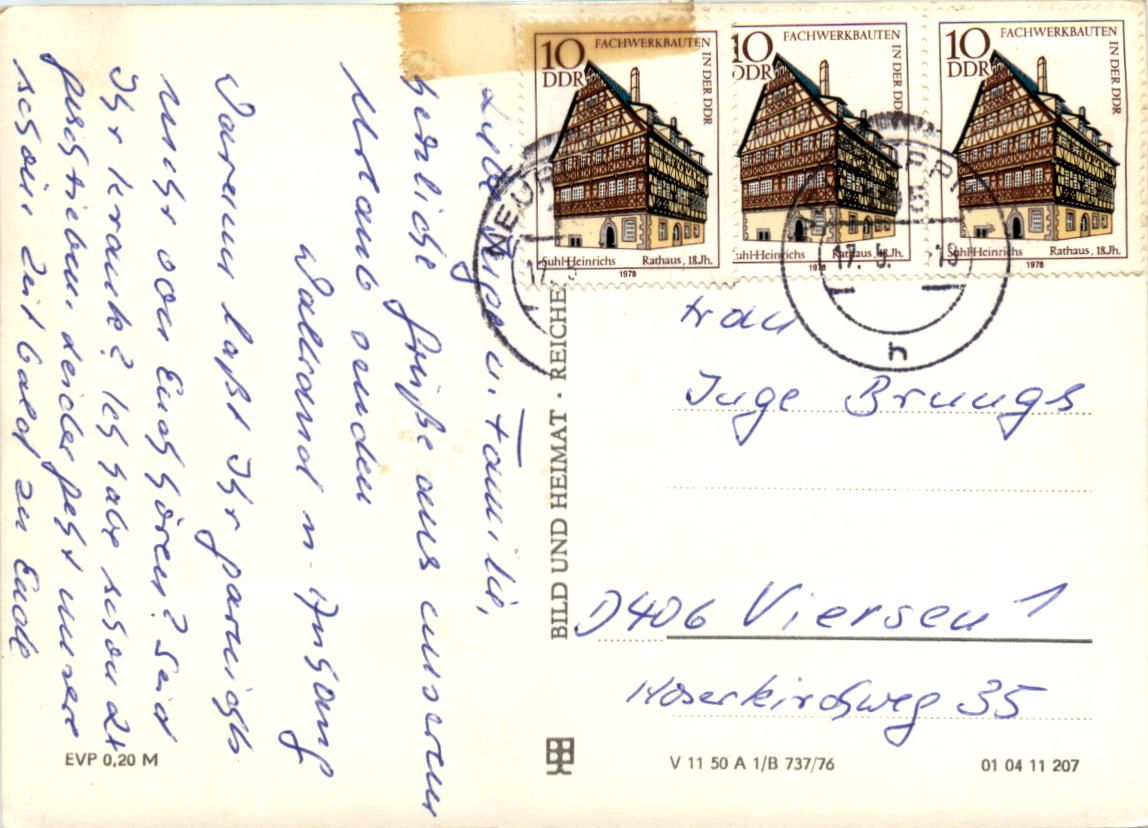 Liebe Inge u. Familie,
herzliche Grüße aus unserem
Urlaub senden
Waltraud m. Anhang
Warum laßt Ihr gar nichts
mehr von Euch hören? Seid
Ihr krank? Ich habe schon 2x
geschrieben. Leider geht unsere
schöne Zeit bald zu Ende
EVP 0,20 M
BILD UND HEIMAT · REICHE
10
DDR
FACHWERKBAUTEN
IN DER DDR
Suhl-Heinrichs Rathaus, 18.Jh.
1978
10
DDR
FACHWERKBAUTEN
IN DER DDR
Suhl-Heinrichs Rathaus, 18.Jh.
1978
10
DDR
FACHWERKBAUTEN
IN DER DDR
Suhl-Heinrichs Rathaus, 18.Jh.
1978
NEUR
17.
PPI
17. 9.
h
Frau
Inge Brungs
D406 Viersen 1
Moserkirchweg 35
V 11 50 A 1/B 737/76
01 04 11 207